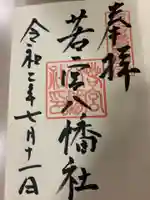 奉拝
若宮八幡社
令和二年七月十一日